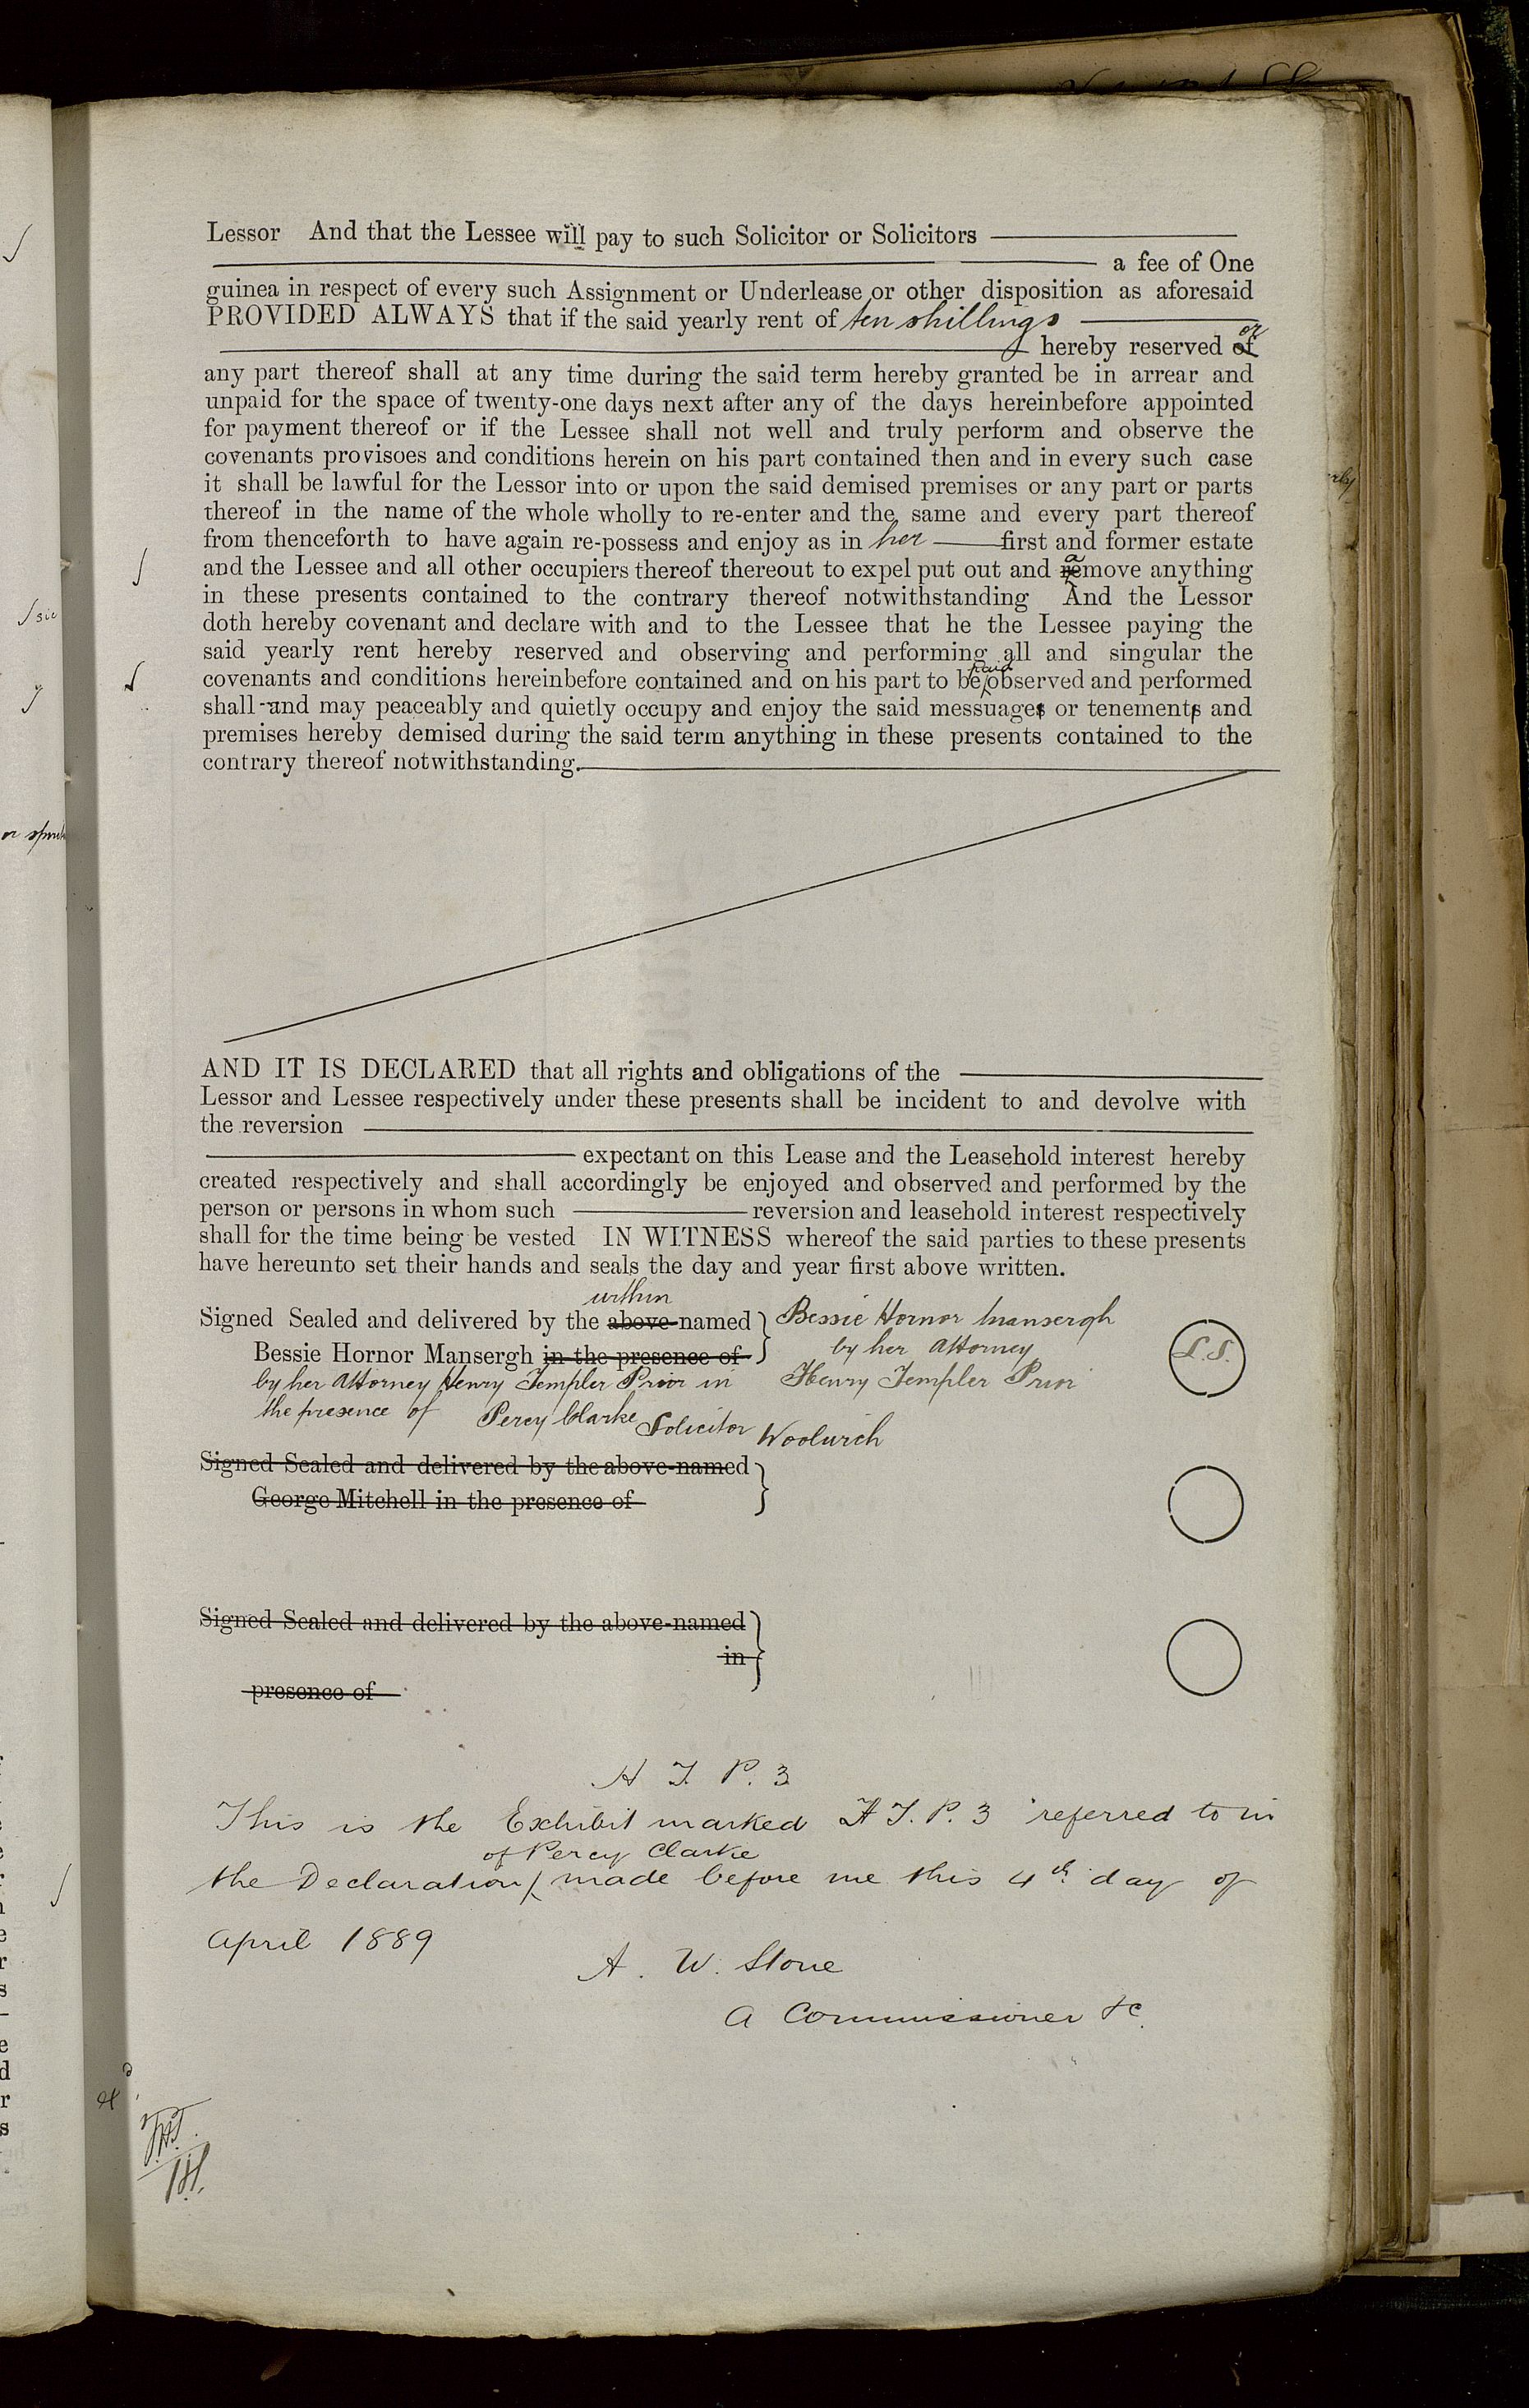 Lessor And that the Lessee will pay to such Solicitor or Solicitors
a fee of One
guinea in respect of every such Assignment or Underlease or other disposition as aforesaid
PROVIDED ALWAYS that if the said yearly rent of ten shillings
or
hereby reserved of
any part thereof shall at any time during the said term hereby granted be in arrear and
unpaid for the space of twenty-one days next after any of the days hereinbefore appointed
for payment thereof or if the Lessee shall not well and truly perform and observe the
covenants provisoes and conditions herein on his part contained then and in every such case
it shall be lawful for the Lessor into or upon the said demised premises or any part or parts
thereof in the name of the whole wholly to re-enter and the same and every part thereof
from thenceforth to have again re-possess and enjoy as in her first and former estate
and the Lessee and all other occupiers thereof thereout to expel put out and remove anything
in these presents contained to the contrary thereof notwithstanding And the Lessor
doth hereby covenant and declare with and to the Lessee that he the Lessee paying the
said yearly rent hereby reserved and observing and performing all and singular the
paid
covenants and conditions hereinbefore contained and on his part to be observed and performed
shall and may peaceably and quietly occupy and enjoy the said messuages or tenements and
premises hereby demised during the said term anything in these presents contained to the
contrary thereof notwithstanding.
AND IT IS DECLARED that all rights and obligations of the
Lessor and Lessee respectively under these presents shall be incident to and devolve with
the reversion
expectant on this Lease and the Leasehold interest hereby
created respectively and shall accordingly be enjoyed and observed and performed by the
person or persons in whom such reversion and leasehold interest respectively
shall for the time being be vested IN WITNESS whereof the said parties to these presents
have hereunto set their hands and seals the day and year first above written.
within
Signed Sealed and delivered by the above-named
Bessie Hornor Mansergh in the presence of
by her Attorney Henry Templer Prior in
the presence of Percy Clarke Solicitor Woolwich
Bessie Hornor Mansergh
by her Attorney
Henry Templer Prior
L.S.
Signed Sealed and delivered by the above-named
George Mitchell in the presence of
Signed Sealed and delivered by the above-named
in
presence of
H T. P. 3
This is the Exhibit marked H T. P. 3 referred to in
of Percy Clarke
the Declaration made before me this 4th day of
April 1889
A. W. Stone
A Commissioner &c.